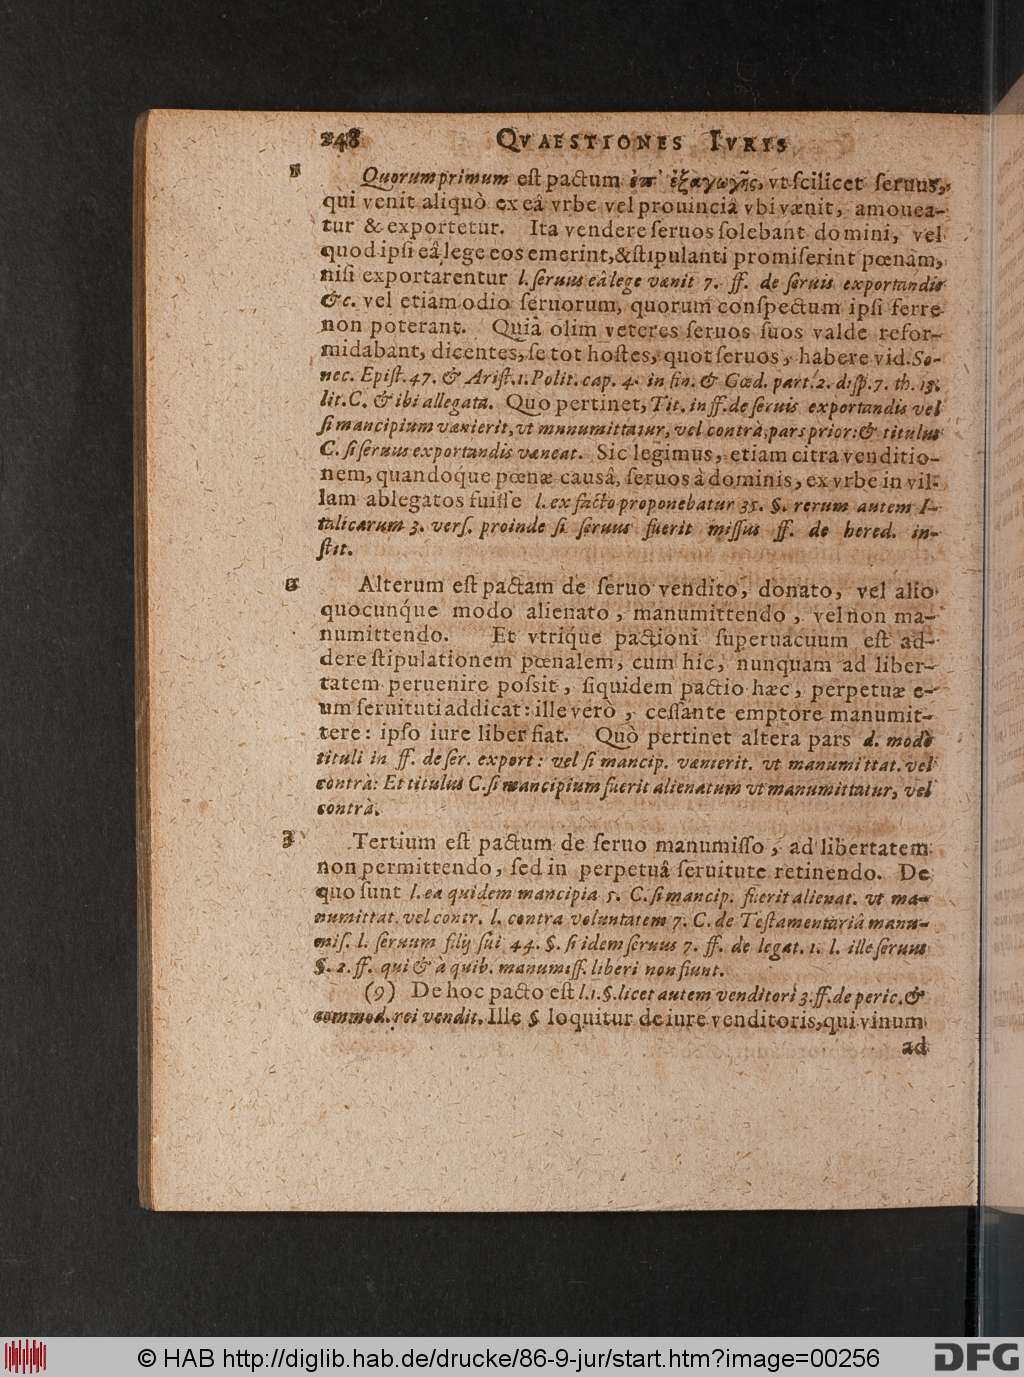 248 QVAESTIONES IVRIS
1 Quorum primum eſt pactum ἐπ' ἐξαγωγῆς, vt ſcilicet ſeruus,
qui venit aliquò ex eâ vrbe vel prouinciâ vbi vænit, amouea-
tur & exportetur. Ita vendere ſeruos ſolebant domini, vel
quod ipſi eâ lege eos emerint, & ſtipulanti promiſerint pœnam,
niſi exportarentur l. ſeruus eâ lege vænit 7. ff. de ſeruis exportandis
&c. vel etiam odio ſeruorum, quorum conſpectum ipſi ferre
non poterant. Quia olim veteres ſeruos ſuos valde refor-
midabant, dicentes, ſe tot hoſtes, quot ſeruos, habere vid. Se-
nec. Epiſt. 47. & Ariſt. 1. Polit. cap. 4. in fin. & Gœd. part. 2. diſp. 7. th. 13.
lit. C. & ibi allegata. Quo pertinet, Tit. in ff. de ſeruis exportandis vel
ſi mancipium vænierit, vt manumittatur, vel contrà, pars prior: & titulus
C. ſi ſeruus exportandis væneat. Sic legimus, etiam citra venditio-
nem, quandoq́ue pœnæ causâ, ſeruos à dominis, ex vrbe in vil-
lam ablegatos fuiſſe l. ex facto proponebatur 35. §. rerum autem I-
talicarum 3. verſ. proinde ſi ſeruus fuerit miſſus ff. de hered. in-
ſtit.
2 Alterum eſt pactam de ſeruo vendito, donato, vel alio
quocunq́ue modo alienato, manumittendo, vel non ma-
numittendo. Et vtrique pactioni ſuperuacuum eſt ad-
dere ſtipulationem pœnalem, cum hic, nunquam ad liber-
tatem peruenire poſsit, ſiquidem pactio hæc, perpetuæ e-
um ſeruituti addicat: ille verò, ceſſante emptore manumit-
tere: ipſo iure liber fiat. Quò pertinet altera pars d. modò
tituli in ff. de ſer. export: vel ſi mancip. vænierit. vt manumittat. vel
contrà: Et titulus C. ſi mancipium fuerit alienatum vt manumittatur, vel
contrà.
3 Tertium eſt pactum de ſeruo manumiſſo, ad libertatem
non permittendo, ſed in perpetuâ ſeruitute retinendo. De
quo ſunt l. ea quidem mancipia 5. C. ſi mancip. fuerit alienat. vt ma-
numittat. vel contr. l. contra voluntatem 7. C. de Teſtamentariâ manu-
miſ. l. ſeruum filij ſui 44. §. ſi idem ſeruus 7. ff. de legat. 1. l. ille ſeruus
§. 2. ff. qui & à quib. manumiſſ. liberi non fiunt.
(9) De hoc pacto eſt l. 1. §. licet autem venditori 3. ff. de peric. &
commod. rei vendit. Ille § loquitur de iure venditoris, qui vinum
ad
© HAB http://diglib.hab.de/drucke/86-9-jur/start.htm?image=00256
DFG